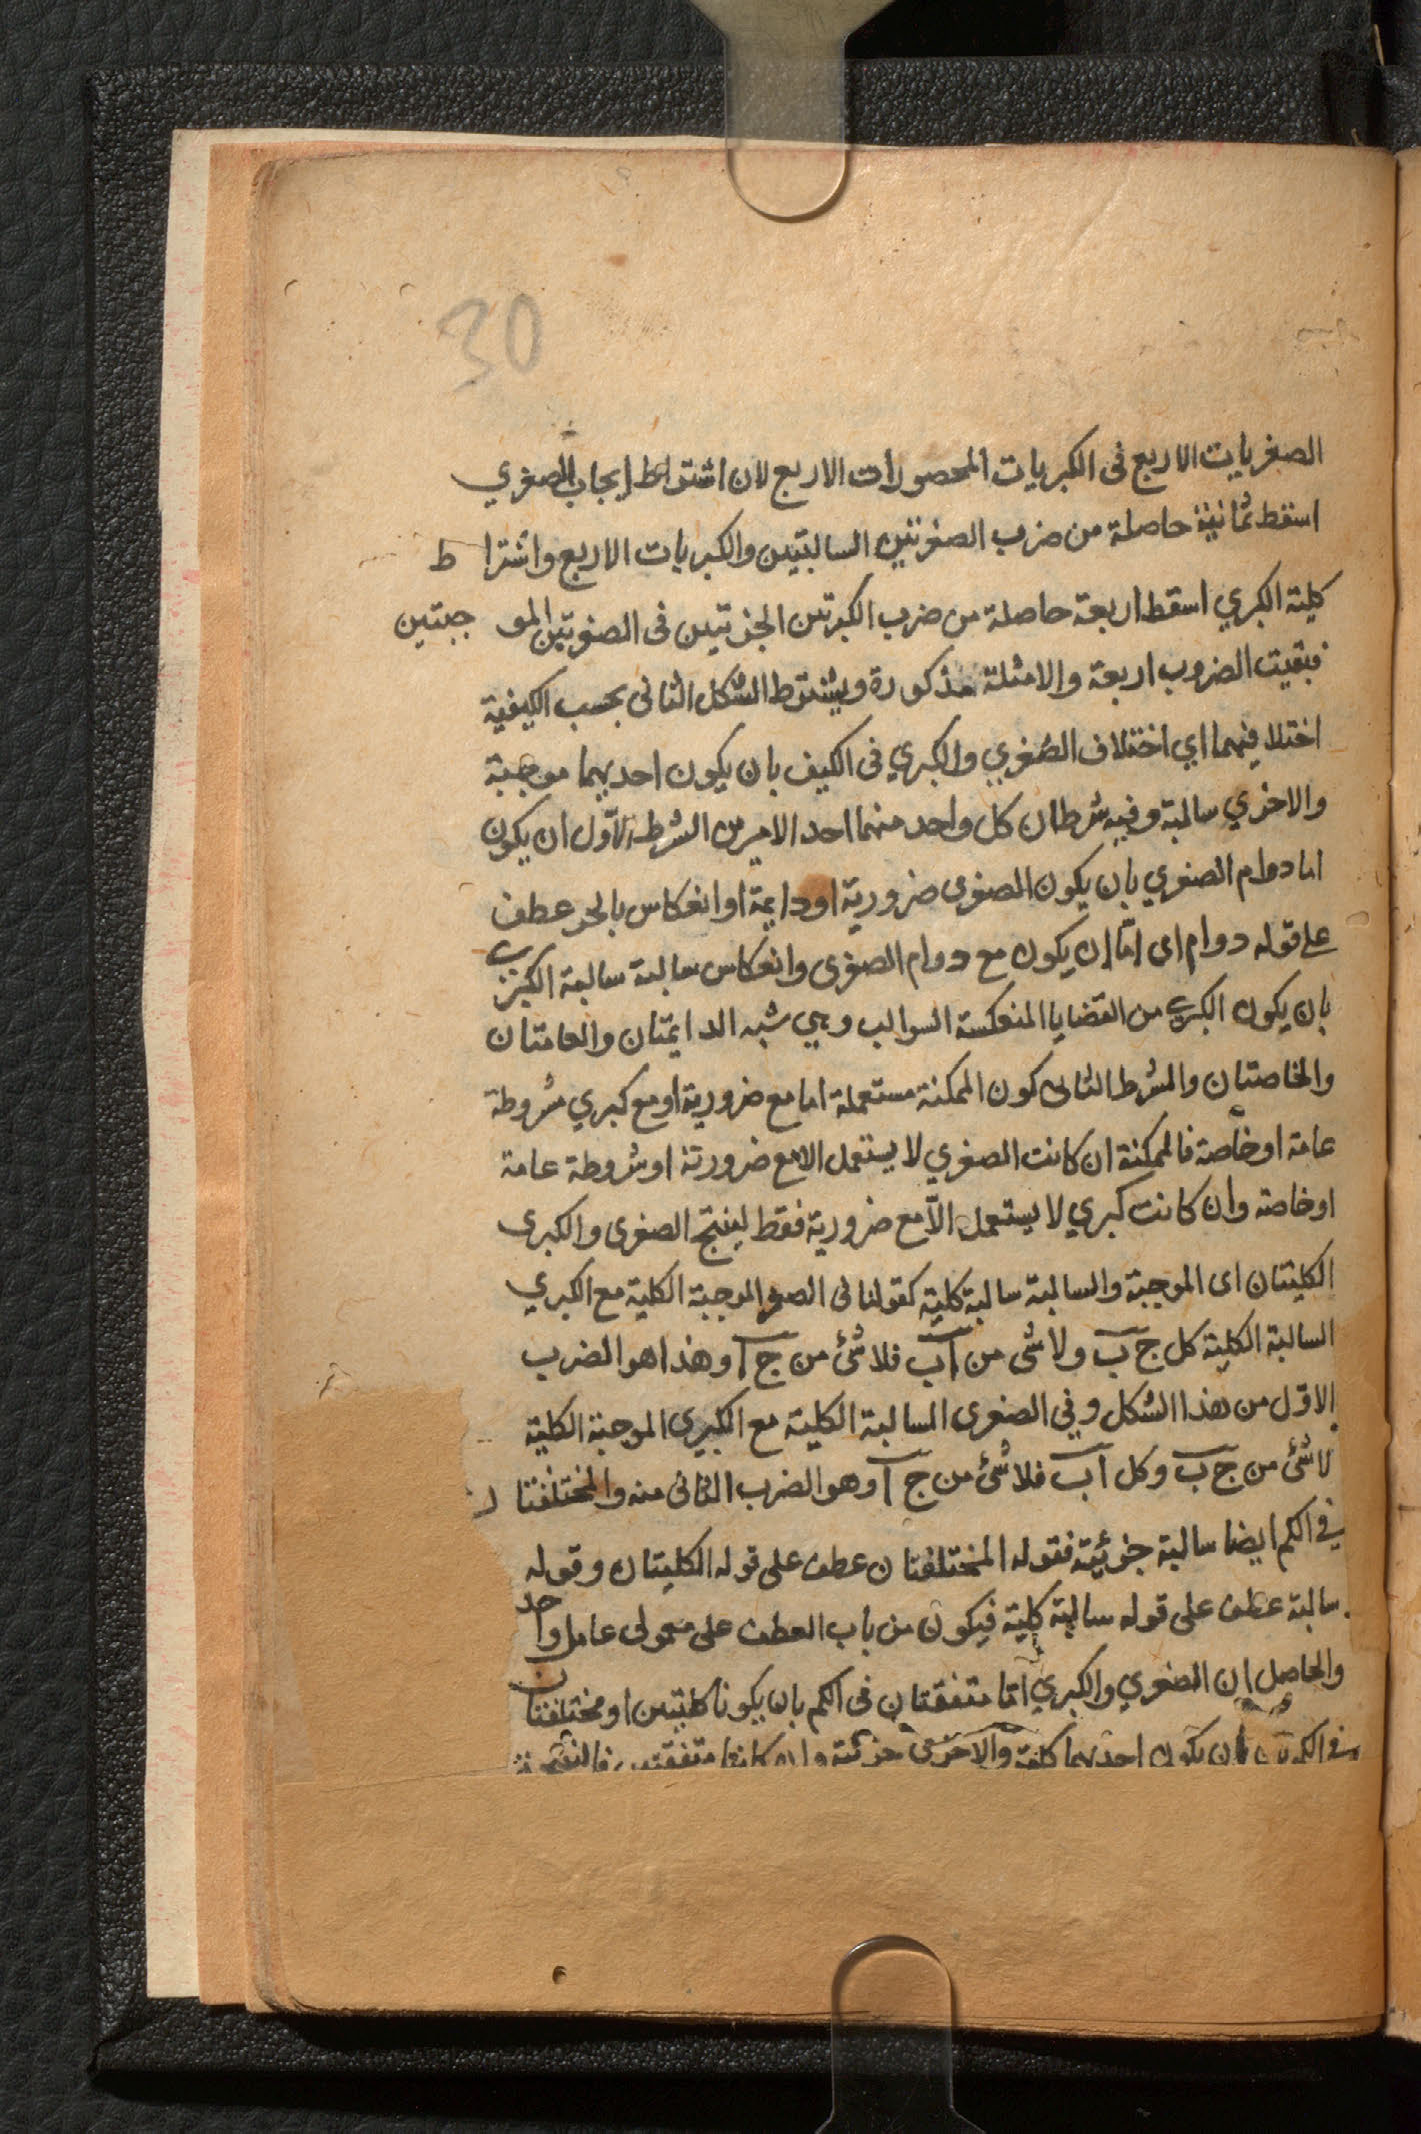 30
الصغريات الاربع فى الكبريات المحصورات الاربع لان اشتراط ايجاب الصغري
اسقط ثمانية حاصلة من ضرب الصغرتين السالبتين والكبريات الاربع واشترا ط
كلية الكبري اسقط اربعة حاصلة من ضرب الكبرتين الجزئيتين فى الصغرتين المو جبتين
فبقيت الضروب اربعة والامثلة مذكورة ويشترط الشكل الثانى بحسب الكيفية
اختلافيهما اي اختلاف الصغري والكبري فى الكيف بان يكون احديهما موجبة
والاخري سالبة وفيه شرطان كل واحد منهما احد الامرين الشرط الاول ان يكون
اما دوام الصغري بان يكون الصغرى ضرورية او دايمة او انعكاس بالجر عطف
على قوله دوام اى امّا ان يكون مع دوام الصغرى وانعكاس سالبة سالبة الكبرى
بان يكون الكبرى من القضايا المنعكسة السوالب وهي شبه الدايمتان والعامتان
والخاصتان والشرط الثانى كون الممكنة مستعملة اما مع ضرورية او مع كبري مشروطة
عامة او خاصة فالممكنة ان كانت الصغري لا يستعمل الا مع ضرورتة او شروطة عامة
او خاصة وان كانت كبري لا يستعمل الّا مع ضرورية فقط لينتج الصغرى والكبرى
الكليتان اى الموجبة والسالبة سالبة كلية كقولنا فى الصغر الموجبة الكلية مع الكبري
السالبة الكلية كل ج ب ولا شئ من اب فلا شئ من ج ا وهذا هو الضرب
الاوّل من هذا الشكل وفي الصغرى السالبة الكلية مع الكبرى الموجبة الكلية
لا شئ من ج ب وكل اب فلا شئ من ج ا وهو الضرب الثانى منه والمختلفتا ن
في الكم ايضا سالبة جزئية فقوله المختلفتان عطف على قوله الكليتان وقوله
سالبة عطف على قوله سالبة كلية فيكون من باب العطف على معمولى عامل واحد
والحاصل ان الصغري والكبري امّا متفقتان فى الكم بان يكونا كليتين او مختلفتان
فى الكم بان يكون احديهما كلية والاخرى جزئية وان كانتا متفقتين فالنتيجة